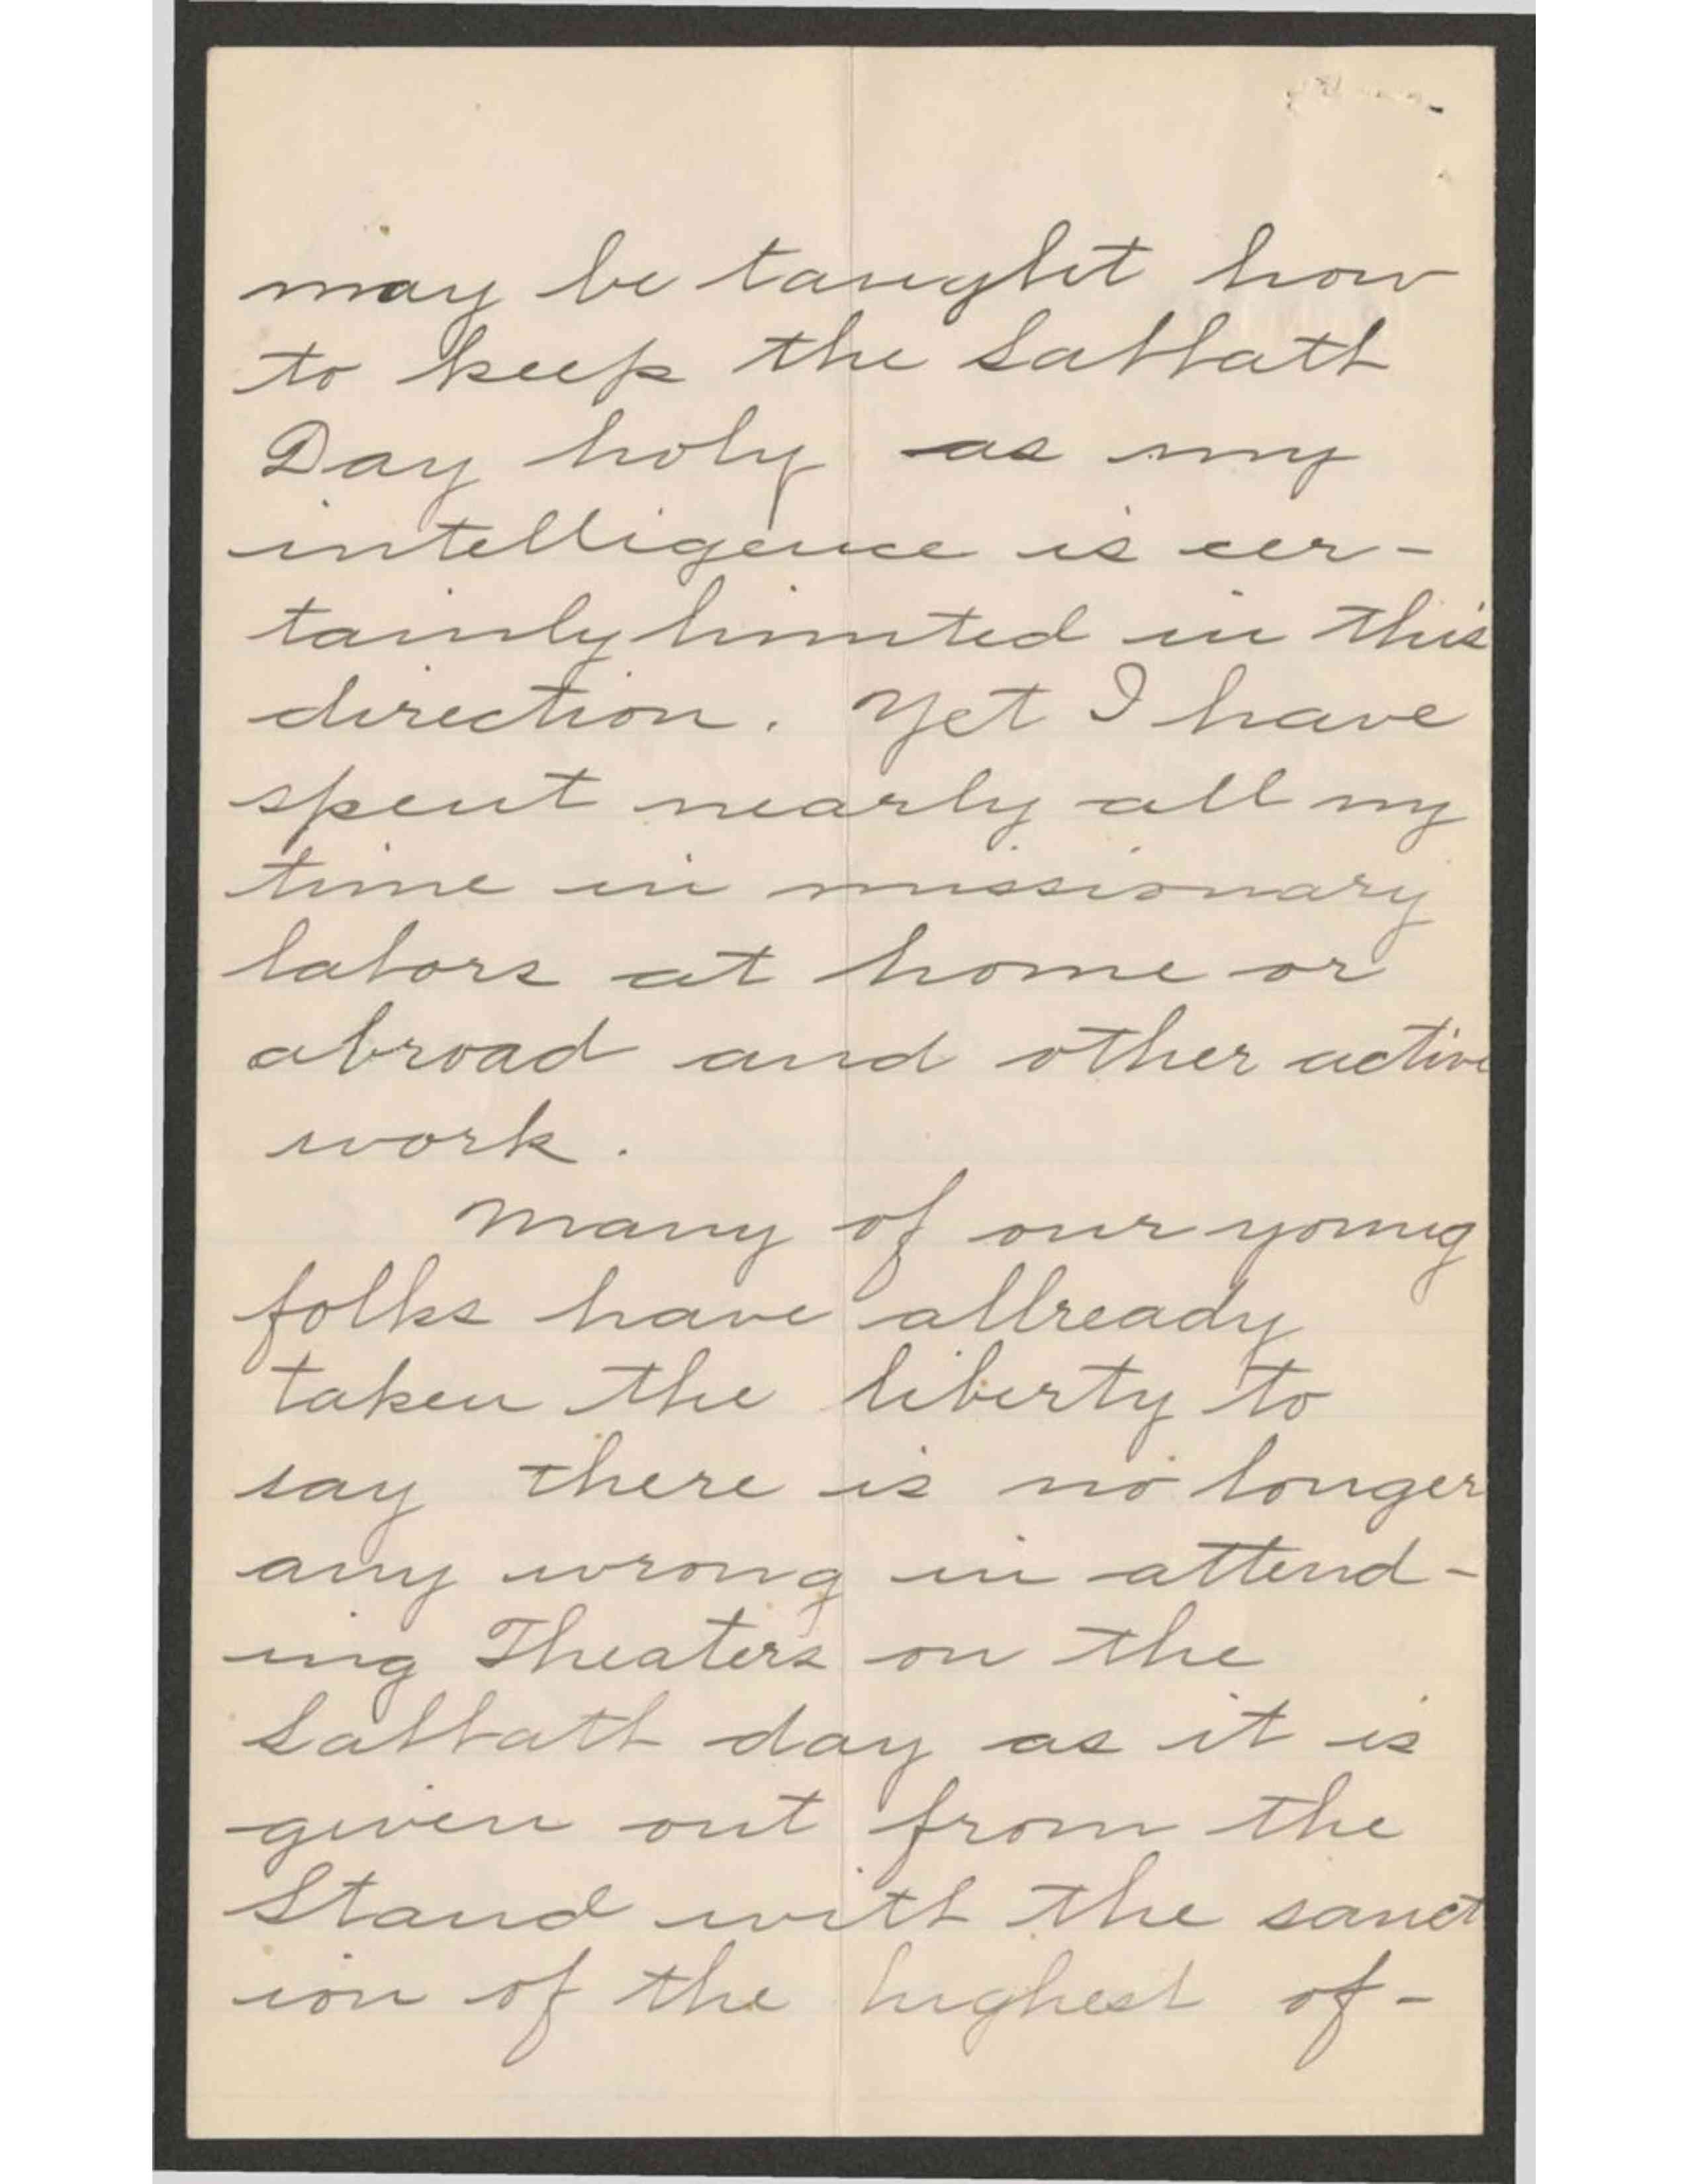 may be taught how
to keep the Sabbath
Day holy as my
intelligence is cer-
tainly limited in this
direction. Yet I have
spent nearly all my
time in missionary
labors at home or
abroad and other active
work.
Many of our young
folks have allready
taken the liberty to
say there is no longer
any wrong in attend-
ing Theaters on the
Sabbath day as it is
given out from the
Stand with the sanct
ion of the highest of-